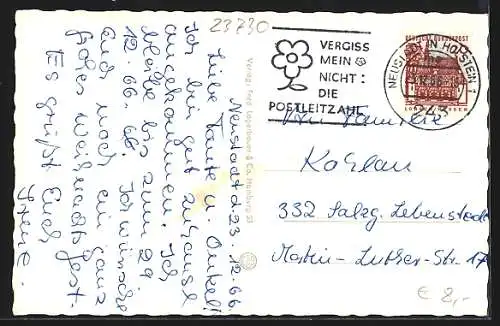 23730
VERGISS
MEIN
NICHT:
DIE
POSTLEITZAHL
NEUSTADT IN HOLSTEIN 1
243
DEUTSCHE BUNDESPOST
Neustadt d. 23.12.66.
Liebe Tante u. Onkel!
Ich bin gut zuhause
angekommen. Ich
bleibe bis zum 29
12.66. Ich wünsche
Euch noch ein ganz
frohes Weihnachtsfest.
Es grüßt Euch
Irene.
An Familie
Kohlau
332 Salzg. Lebenstedt
Martin-Luther-Str. 17
Verlag: & Co., Hamburg
€ 2,-